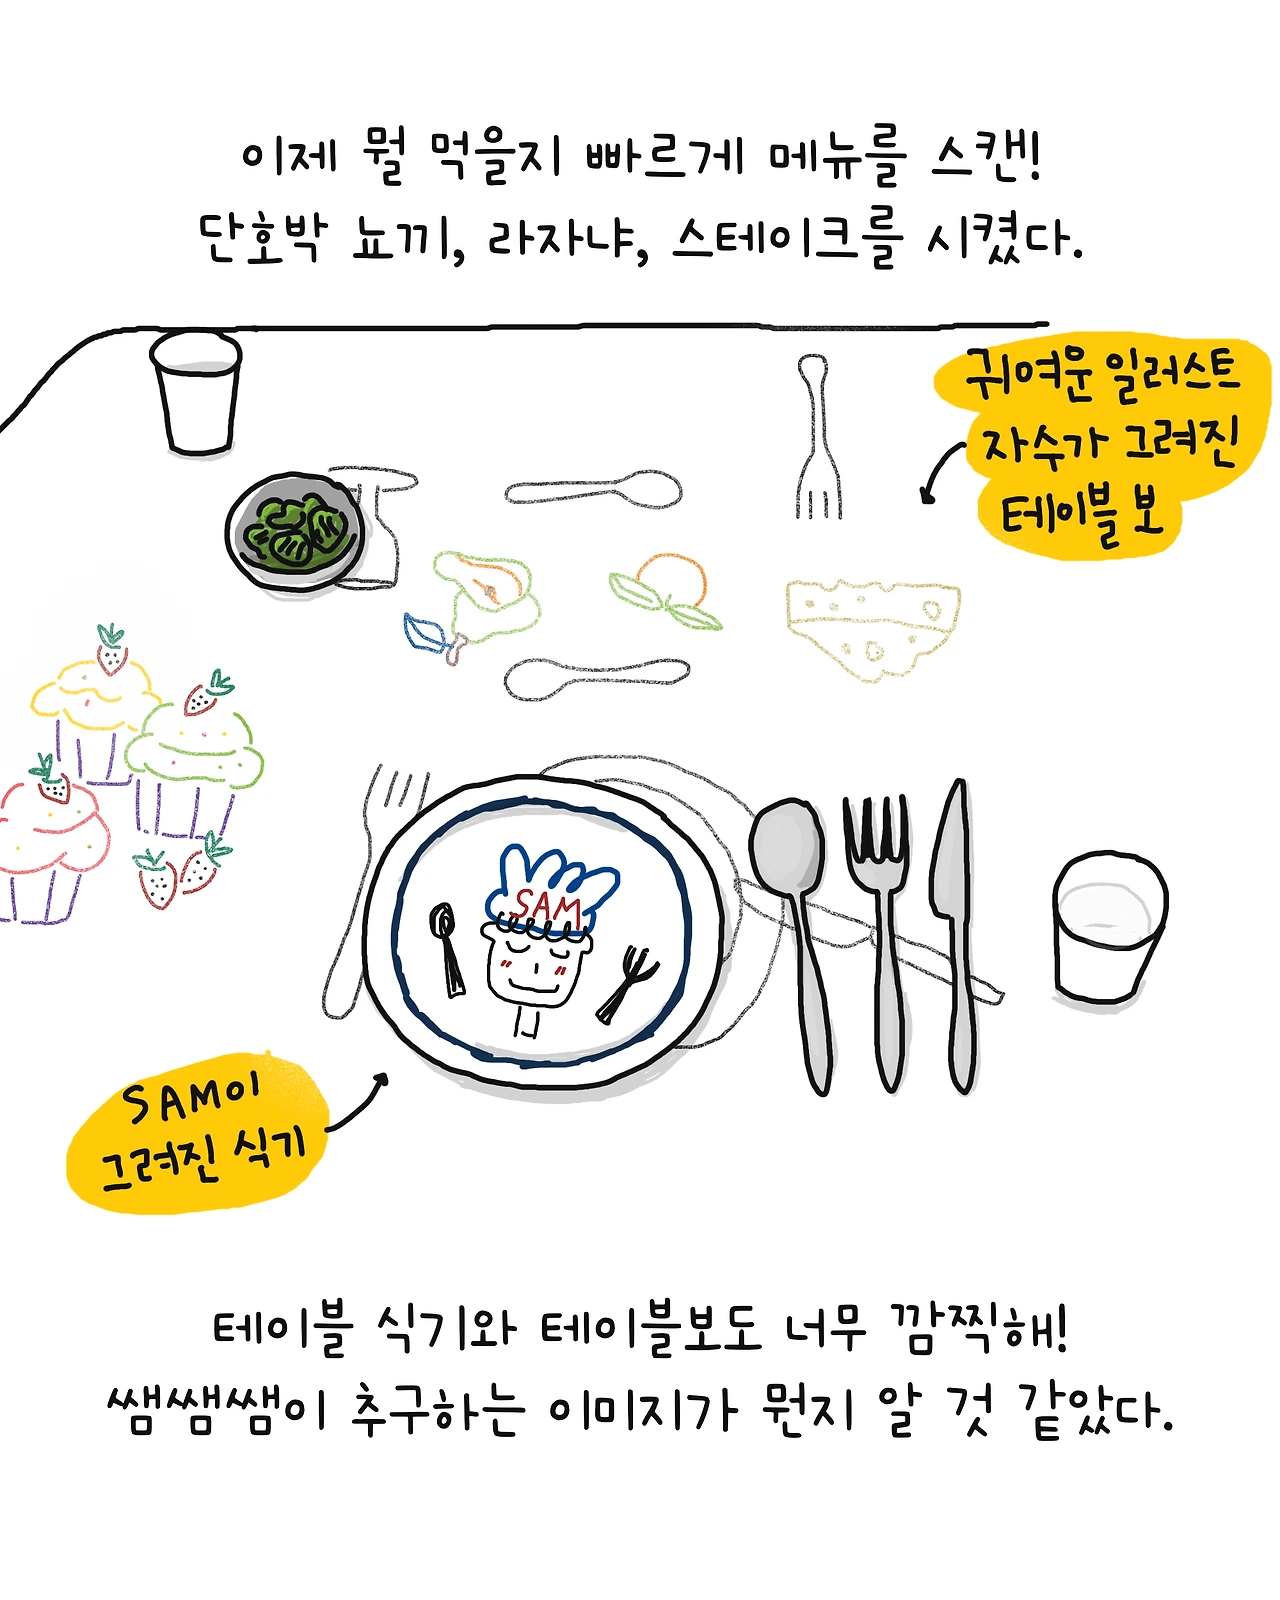 이제 뭘 먹을지 빠르게 메뉴를 스캔!
단호박 뇨끼, 라자냐, 스테이크를 시켰다.
귀여운 일러스트
자수가 그려진
테이블 보
SAM
SAM이
그려진 식기
테이블 식기와 테이블보도 너무 깜찍해!
쌤쌤쌤이 추구하는 이미지가 뭔지 알 것 같았다.